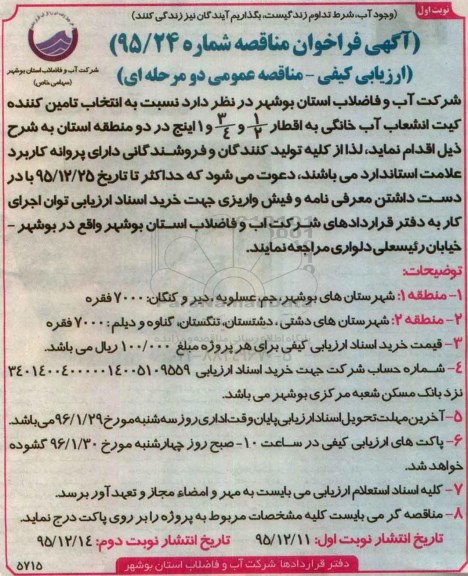 نوبت اول
(وجود آب، شرط تداوم زندگیست، بگذاریم آیندگان نیز زندگی کنند)
(آگهی فراخوان مناقصه شماره ۹۵/۲۴)
(ارزیابی کیفی - مناقصه عمومی دو مرحله ای)
شرکت آب و فاضلاب استان بوشهر
(سهامی خاص)
شرکت آب و فاضلاب استان بوشهر در نظر دارد نسبت به انتخاب تامین کننده
کیت انشعاب آب خانگی به اقطار ۱/۲ و ۳/۴ و ۱ اینچ در دو منطقه استان به شرح
ذیل اقدام نماید، لذا از کلیه تولید کنندگان و فروشندگانی دارای پروانه کاربرد
علامت استاندارد می باشند، دعوت می شود که حداکثر تا تاریخ ۹۵/۱۲/۲۵ با در
دست داشتن معرفی نامه و فیش واریزی جهت خرید اسناد ارزیابی توان اجرای
کار به دفتر قراردادهای شرکت آب و فاضلاب استان بوشهر واقع در بوشهر -
خیابان رئیسعلی دلواری مراجعه نمایند.
توضیحات:
۱- منطقه ۱: شهرستان های بوشهر، جم، عسلویه، دیر و کنگان: ۷۰۰۰ فقره
۲- منطقه ۲: شهرستان های دشتی، دشتستان، تنگستان، گناوه و دیلم: ۷۰۰۰ فقره
۳- قیمت خرید اسناد ارزیابی کیفی برای هر پروژه مبلغ ۱۰۰/۰۰۰ ریال می باشد.
۴- شماره حساب شرکت جهت خرید اسناد ارزیابی ۳۴۰۱۴۰۰۴۰۰۰۰۰۱۴۰۰۵۱۰۹۵۵۹
نزد بانک مسکن شعبه مرکزی بوشهر می باشد.
۵- آخرین مهلت تحویل اسناد ارزیابی پایان وقت اداری روز سه شنبه مورخ ۹۶/۱/۲۹ می باشد.
۶- پاکت های ارزیابی کیفی در ساعت ۱۰- صبح روز چهارشنبه مورخ ۹۶/۱/۳۰ گشوده
خواهد شد.
۷- کلیه اسناد استعلام ارزیابی می بایست به مهر و امضاء مجاز و تعهد آور برسد.
۸- مناقصه گر می بایست کلیه مشخصات مربوط به پروژه را بر روی پاکت درج نماید.
تاریخ انتشار نوبت اول: ۹۵/۱۲/۱۱ تاریخ انتشار نوبت دوم: ۹۵/۱۲/۱۴
دفتر قراردادها شرکت آب و فاضلاب استان بوشهر
۵۷۱۵